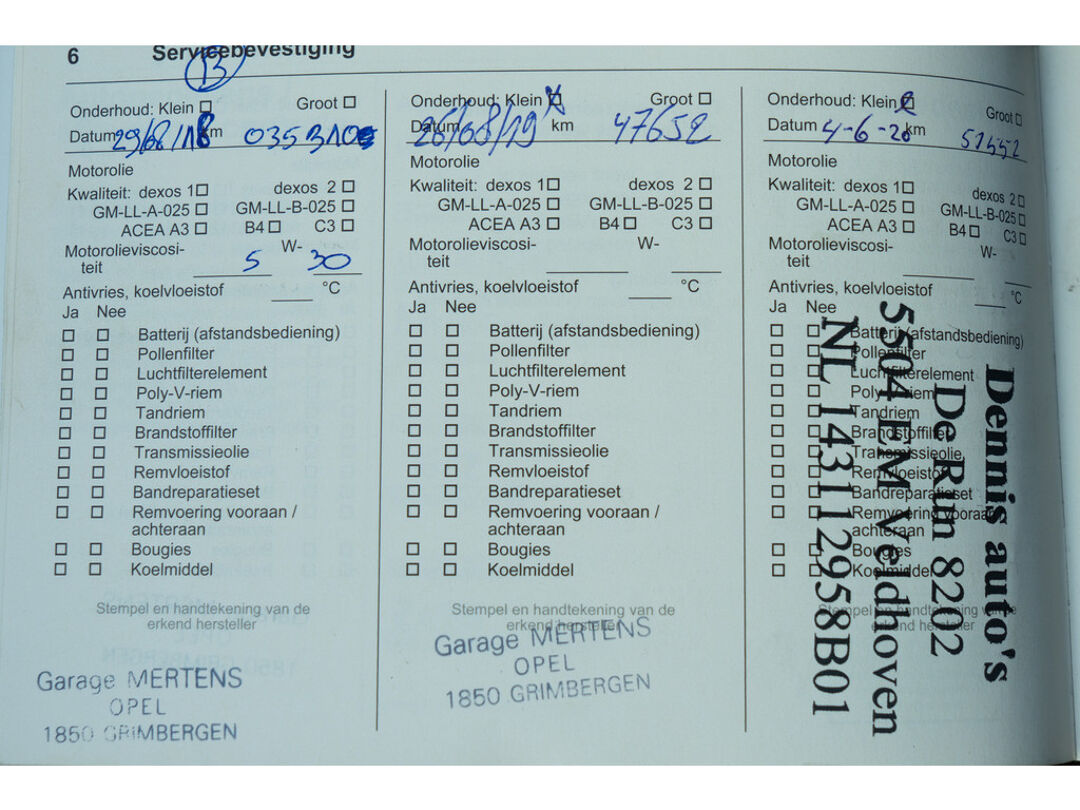 6 Servicebevestiging
13
Onderhoud: Klein Groot
Datum 29/08/18 km
Motorolie
Kwaliteit: dexos 1 dexos 2
GM-LL-A-025 GM-LL-B-025
ACEA A3 B4 C3
Motorolieviscosi- W-
teit 5 30
Antivries, koelvloeistof °C
Ja Nee
Batterij (afstandsbediening)
Pollenfilter
Luchtfilterelement
Poly-V-riem
Tandriem
Brandstoffilter
Transmissieolie
Remvloeistof
Bandreparatieset
Remvoering vooraan /
achteraan
Bougies
Koelmiddel
Stempel en handtekening van de
erkend hersteller
Garage MERTENS
OPEL
1850 GRIMBERGEN
Onderhoud: Klein X Groot
Datum 26/08/19 km 47652
Motorolie
Kwaliteit: dexos 1 dexos 2
GM-LL-A-025 GM-LL-B-025
ACEA A3 B4 C3
Motorolieviscosi- W-
teit
Antivries, koelvloeistof °C
Ja Nee
Batterij (afstandsbediening)
Pollenfilter
Luchtfilterelement
Poly-V-riem
Tandriem
Brandstoffilter
Transmissieolie
Remvloeistof
Bandreparatieset
Remvoering vooraan /
achteraan
Bougies
Koelmiddel
Stempel en handtekening van de
erkend hersteller
Garage MERTENS
OPEL
1850 GRIMBERGEN
Onderhoud: Klein Groot
Datum 4-6-20 km
Motorolie
Kwaliteit: dexos 1 dexos 2
GM-LL-A-025 GM-LL-B-025
ACEA A3 B4 C3
Motorolieviscosi- W-
teit
Antivries, koelvloeistof °C
Ja Nee
Batterij (afstandsbediening)
Pollenfilter
Luchtfilterelement
Poly-V-riem
Tandriem
Brandstoffilter
Transmissieolie
Remvloeistof
Bandreparatieset
Remvoering vooraan
achteraan
Bougies
Koelmiddel
Stempel en handtekening van de
erkend hersteller
Dennis auto's
De Run 8202
5504 EM Veldhoven
NL 143112958B01